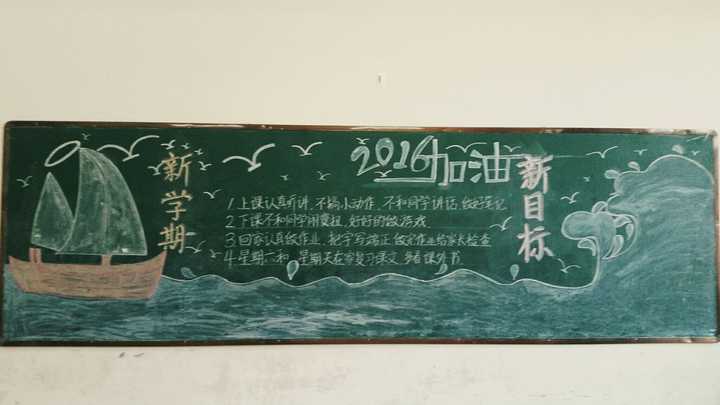 新学期
2016加油
新目标
1 上课认真听讲.不搞小动作.不和同学讲话.做好笔记
2 下课不和同学闹矛盾.好好的做游戏
3 回家认真做作业.把字写端正 做完作业给家长检查
4.星期六和 星期天在家复习课文 多看课外书